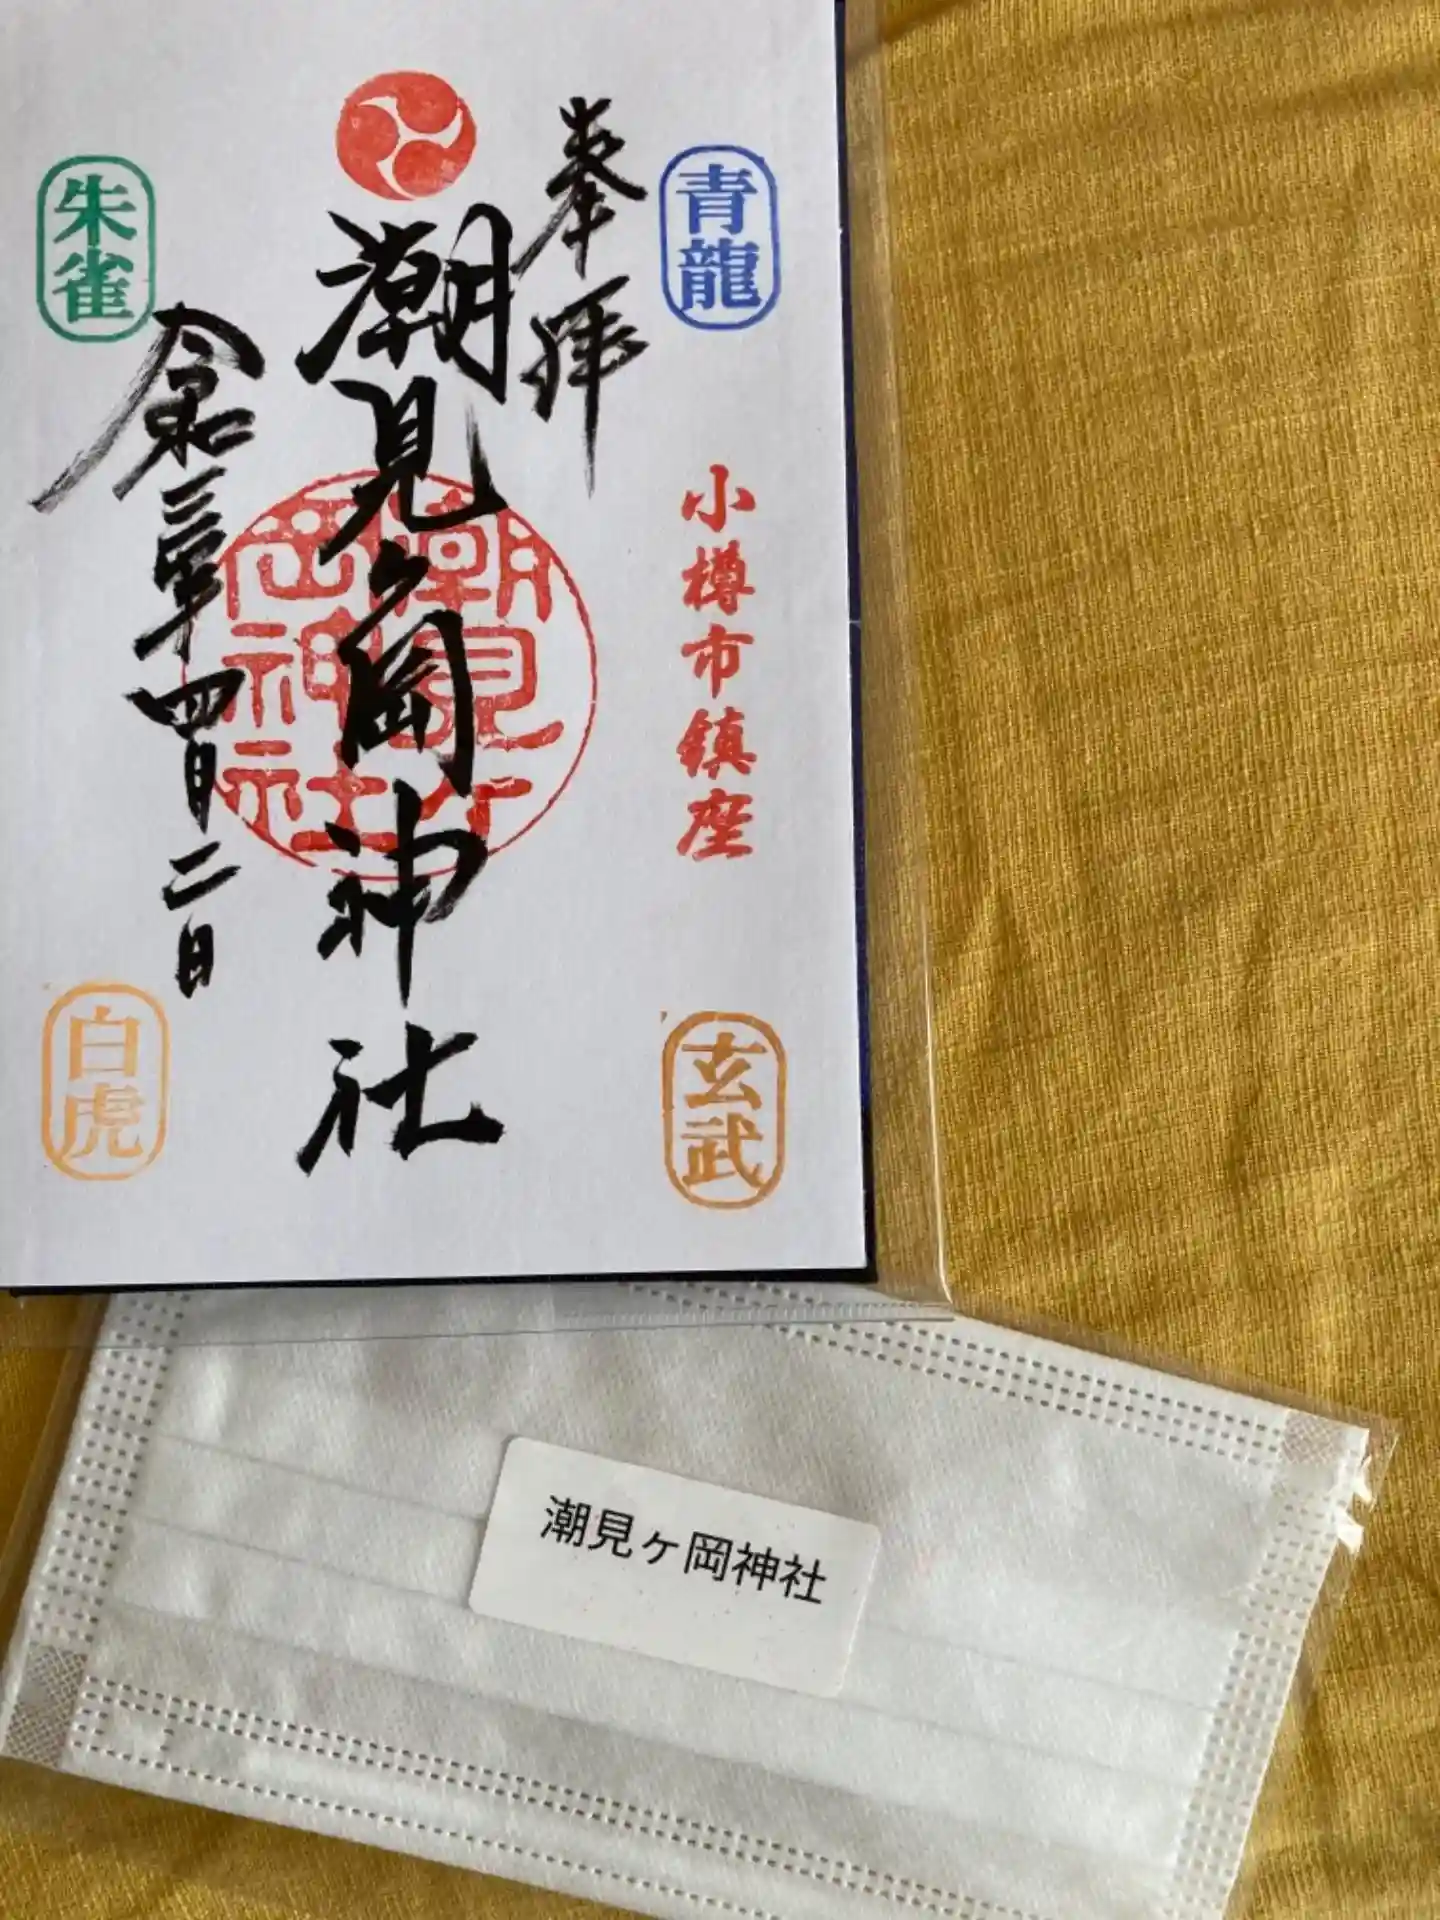 青龍
奉拝
小樽市鎮座
玄武
潮見ヶ岡神社
潮見ヶ
岡神社
朱雀
令和三年四月二日
白虎
潮見ヶ岡神社